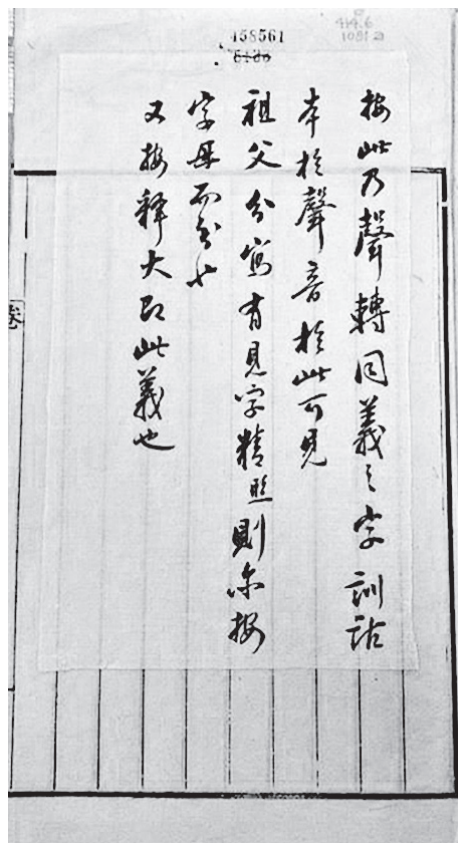 158561
414.6
按此乃聲轉同義之字訓詁
本於聲音於此可見
祖父分寫有見字精照則係按
字母而分也
又按釋大即此義也
卷